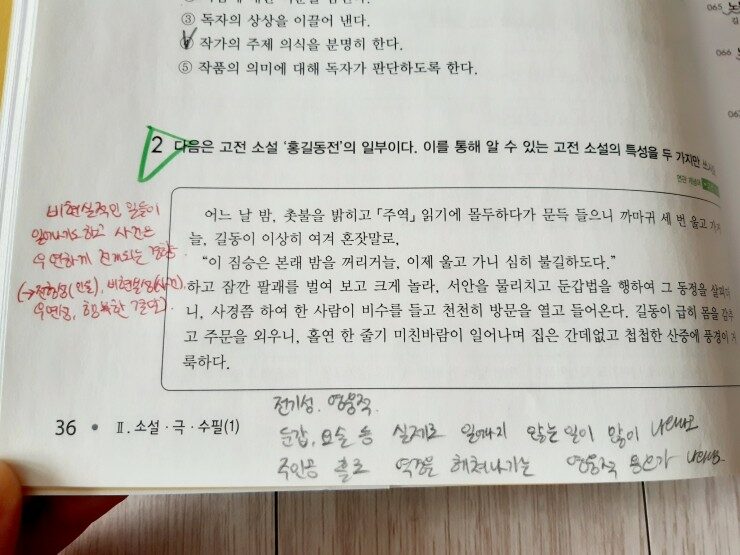 ③ 독자의 상상을 이끌어 낸다.
④ 작가의 주제 의식을 분명히 한다.
⑤ 작품의 의미에 대해 독자가 판단하도록 한다.
065
066
2 다음은 고전 소설 '홍길동전'의 일부이다. 이를 통해 알 수 있는 고전 소설의 특성을 두 가지만 쓰시오
비현실적인 일들이
일어나기도 하고 사건은
우연하게 전개되는 경향.
(→전형성(인물), 비현실성(사건),
우연성, 행복한 결말).
어느 날 밤, 촛불을 밝히고 「주역」 읽기에 몰두하다가 문득 들으니 까마귀 세 번 울고 가거
늘, 길동이 이상히 여겨 혼잣말로,
"이 짐승은 본래 밤을 꺼리거늘, 이제 울고 가니 심히 불길하도다."
하고 잠깐 팔괘를 벌여 보고 크게 놀라, 서안을 물리치고 둔갑법을 행하여 그 동정을 살피더
니, 사경쯤 하여 한 사람이 비수를 들고 천천히 방문을 열고 들어온다. 길동이 급히 몸을 감추
고 주문을 외우니, 홀연 한 줄기 미친바람이 일어나며 집은 간데없고 첩첩한 산중에 풍경이 거
룩하다.
전기성, 영웅적
둔갑, 요술 등 실제로 일어나지 않는 일이 많이 나타나고
주인공 홀로 역경을 헤쳐나가는 영웅적 요소가 나타나
36 • Ⅱ. 소설·극·수필(1)